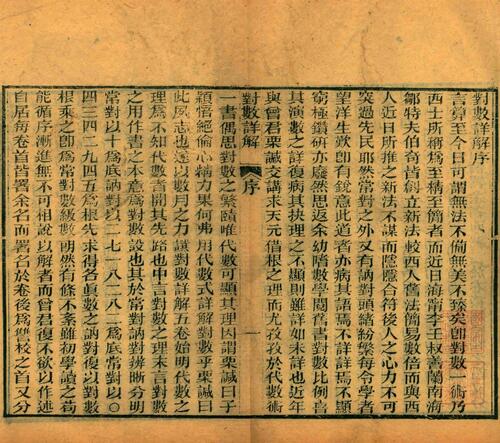 對數詳解序
言算至今日可謂無法不備無美不臻矣卽對數一術乃
西士所稱爲至精至簡者而近日海甯李壬叔善蘭南海
鄒特夫伯奇皆創立新法較西人舊法簡易數倍而與西
人近日所推之新法不謀而隱隱合符後人之心力不可
突過先民耶然常對之外又有訥對頭緒紛繁每令學者
望洋生歎卽有銳意此道者亦病其語焉不詳詳焉不顯
窮極鑽研亦廢然思返余幼嗜數學閱舊書對數比例言
其演數之詳復病其抉理之不顯則雖詳如未詳也近年
與曾君栗諴交講求天元借根之理而尤孜孜於代數術
一書偶思對數之繁賾唯代數可顯其理因謂栗諴曰子
穎悟絕倫心精力果何弗用代數式詳解對數乎栗諴曰
此夙志也遂以數月之力譔對數詳解五卷始明代數之
理爲不知代數者開其先路也中言對數之理末言對數
之用作書之本意爲對數設也其於常對訥對辨晰分明
常對以十爲底訥對以二七一八二八三爲底常對以〇
四三四二九四五爲根先求得各眞數之訥對復以對數
根乘之卽爲常對數級數朗然有條不紊雖初學讀之苟
能循序漸進無不可相說以解者而曾君復不欲以作述
自居每卷首皆署余名而署名於卷後爲雙校之首又分
對數詳解
序
一